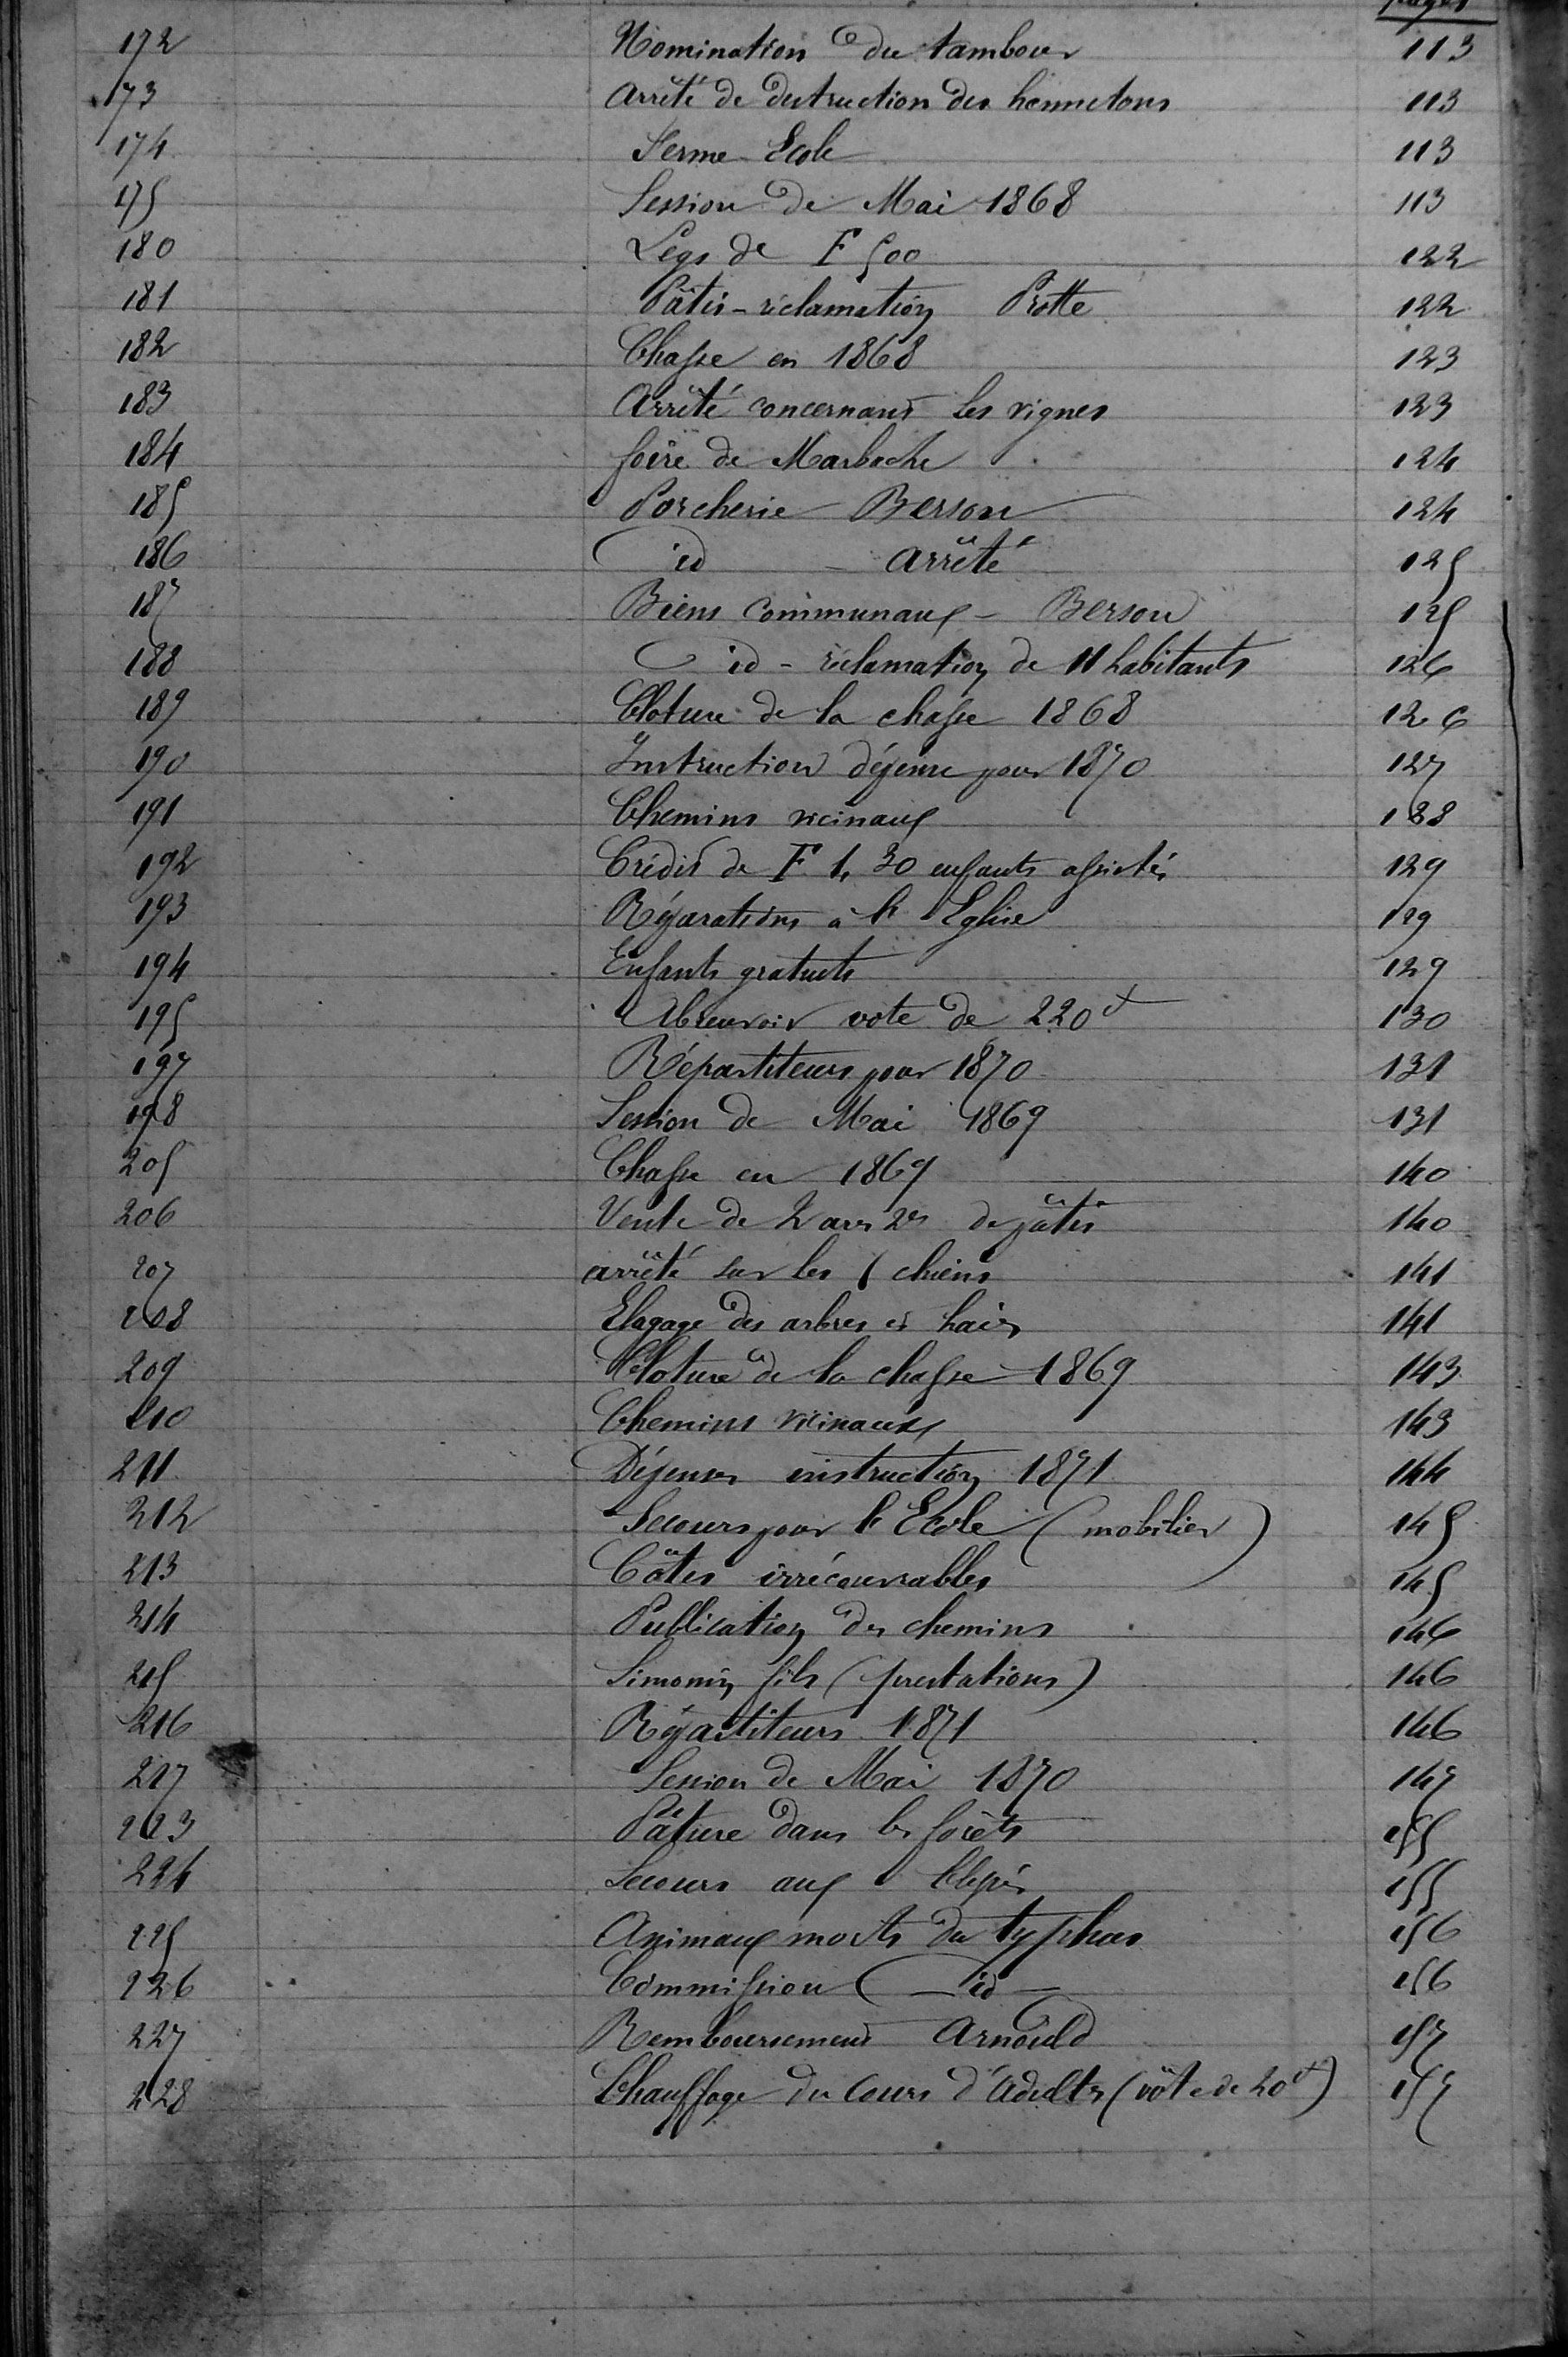 pages
172 Nomination du tambour 113
173 arrêté de destruction des hannetons 113
174 Ferme-Ecole 113
175 Session de Mai 1868 113
180 Legs de F 500 122
181 Pâtis-réclamation Protte 122
182 Chasse en 1868 123
183 Arrêté concernant les vignes 123
184 foire de Marbache 124
185 Porcherie Berson 124
186 id arrêté 125
187 Biens communaux - Berson 125
188 id - réclamation de 11 habitants 126
189 Cloture de la chasse 1868 126
190 Instruction dépense pour 1870 127
191 Chemins vicinaux 128
192 Crédit de F 1,30 enfants assistés 129
193 Réparations à l'Eglise 129
194 Enfants gratuits 129
195 Abreuvoir vote de 220f 130
197 Répartiteurs pour 1870 131
198 Session de Mai 1869 131
205 Chasse en 1869 140
206 Vente de 2 ares de pâtis 140
207 arrêté sur les chiens 141
208 Elagage des arbres et haies 141
209 Cloture de la chasse 1869 143
210 Chemins vicinaux 143
211 Dépenses instruction 1871 144
212 Secours pour l'Ecole (mobilier) 145
213 Côtes irrécouvrables 145
214 Publication des chemins 146
215 Simonin fils (prestations) 146
216 Répartiteurs 1871 146
217 Session de Mai 1870 147
223 Pâture dans les forêts 155
224 Secours aux Blessés 155
225 Animaux morts du typhus 156
226 Commission - id - 156
227 Remboursement Arnould 157
228 Chauffage du Cours d'Adultes (vôte de 20f) 157